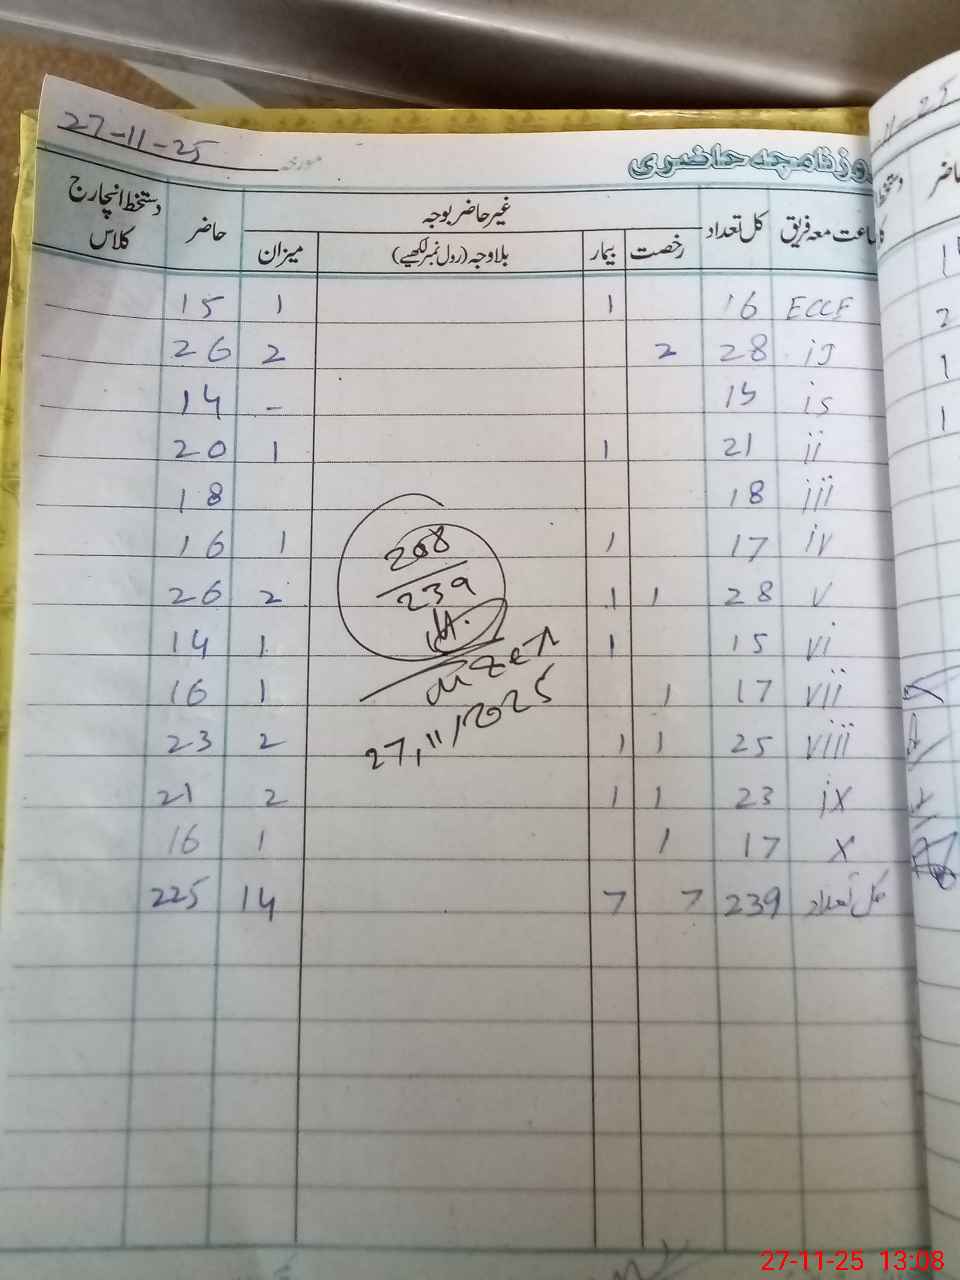 27-11-25 مورخہ روزنامچہ حاضری
جماعت معہ فریق کل تعداد غیر حاضر بوجہ حاضر دستخط انچارج کلاس
رخصت بیمار بلاوجہ (رول نمبر لکھیے) میزان
ECCE 16 1 1 15
28 2 2 26
14
ii 21 1 1 20
iii 18 18
iv 17 1 1 16
v 28 1 1 2 26
vi 15 1 1 14
vii 17 1 1 16
viii 25 1 1 2 23
ix 23 1 1 2 21
x 17 1 1 16
کل تعداد 239 7 7 14 225
208
239
27,11/2025
27-11-25 13:08